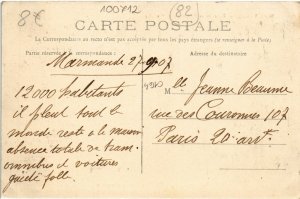 8€
100712
(82)
CARTE POSTALE
La Correspondance au recto n'est pas acceptée par tous les pays étrangers (se renseigner à la Poste)
Partie réservée à la correspondance
Adresse du destinataire
Marmande 27 907
12000 habitants
il pleut tout le
monde reste à la maison
absence totale de tram
omnibus et voitures
gaieté folle
Mlle Jeanne Beaume
rue des Couronnes 107
Paris 20 ardt